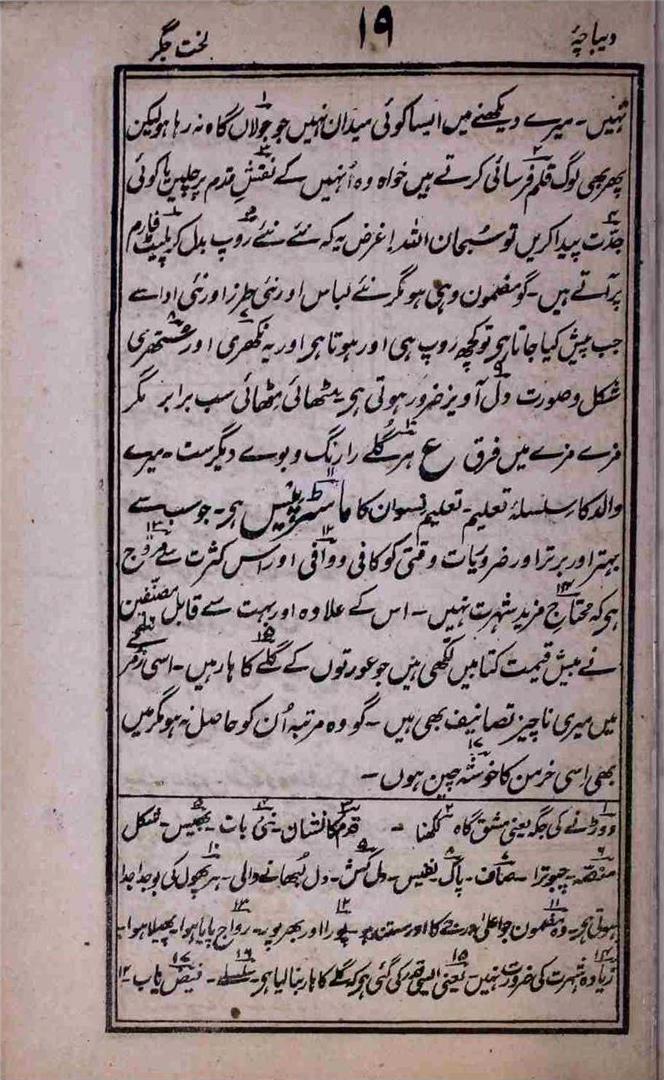 دیباچۂ
۱۹
لخت جگر
نہیں۔ میرے دیکھنے میں ایسا کوئی میدان نہیں جو جولاں گاہ نہ رہا ہو لیکن
پھر بھی لوگ قلم فرسائی کرتے ہیں خواہ وہ اُنہیں کے نقشِ قدم پر چلیں یا کوئی
جدّت پیدا کریں تو سُبحان اللہ! غرض یہ کہ نئے نئے روپ بدل کر پلیٹ فارم
پر آتے ہیں۔ گو مضمون وہی ہو مگر نئے لباس اور نئی طرز اور نئی ادا سے
جب پیش کیا جاتا ہے تو کچھ روپ ہی اور ہوتا ہے اور یہ نکھری اور ستھری
شکل و صورت دل آویز ضرور ہوتی ہے۔ مٹھائی مٹھائی سب برابر مگر
مزے مزے میں فرق ع ہر گلے را رنگ و بوے دیگرست۔ میرے
والد کا سلسلۂ تعلیم۔ تعلیم نسوان کا ماسٹر پیس ہے۔ جو سب سے
بہتر اور برتر اور ضروریات وقتی کو کافی و وافی اور اس کثرت سے مروّج
ہے کہ محتاجِ مزید شہرت نہیں۔ اس کے علاوہ اور بہت سے قابل مصنّفین
نے بیش قیمت کتابیں لکھی ہیں جو عورتوں کے گلے کا ہار ہیں۔ اسی زمرے
میں میری ناچیز تصانیف بھی ہیں۔ گو وہ مرتبہ اُن کو حاصل نہ ہو مگر میں
بھی اِسی خرمن کا خوشہ چین ہوں۔
۱ دوڑنے کی جگہ یعنی مشق گاہ ۲ لکھنا۔ ۳ قدم کا نشان۔ ۴ نئی بات۔ ۵ بھیس۔ شکل
۶ چبوترا۔ صاف۔ پاک۔ ۸ نفیس۔ ۹ دل کش۔ دل لُبھانے والی۔ ۱۰ ہر پھول کی بو جدا جدا
ہوتی ہے۔ ۱۱ وہ مضمون جو اعلیٰ درجے کا اور مستند ہو۔ ۱۲ پورا اور بھرپور۔ ۱۳ رواج پایا ہوا۔ پھیلا ہوا۔
۱۴ زیادہ شہرت کی ضرورت نہیں۔ ۱۵ یعنی ایسی قدر کی گئی ہے کہ گلے کا ہار بنا لیا ہے۔ ۱۶ سلسلے۔ ۱۷ فیض یاب۔ ۱۲